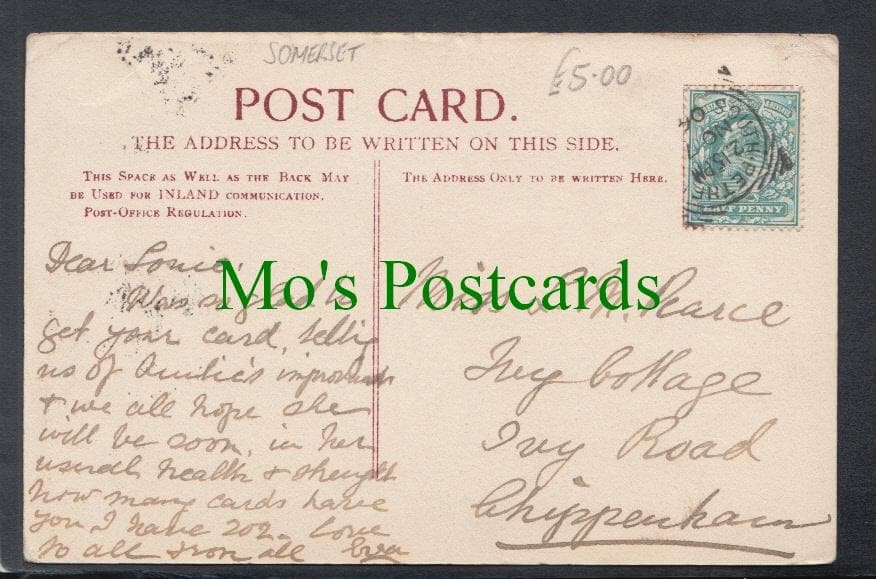 SOMERSET
£5.00
POST CARD.
THE ADDRESS TO BE WRITTEN ON THIS SIDE.
THIS SPACE AS WELL AS THE BACK MAY
BE USED FOR INLAND COMMUNICATION.
POST-OFFICE REGULATION.
THE ADDRESS ONLY TO BE WRITTEN HERE.
HALF PENNY
2.15 PM
NO 04
Mo's Postcards
Dear Louie
Was so glad to
get your card, tellig
us of Auntie's
& we all hope she
will be soon, in her
usual health & strength
how many cards have
you I have 202. Love
to all from all Eva
Miss Pearce
Ivy Cottage
Ivy Road
Chippenham